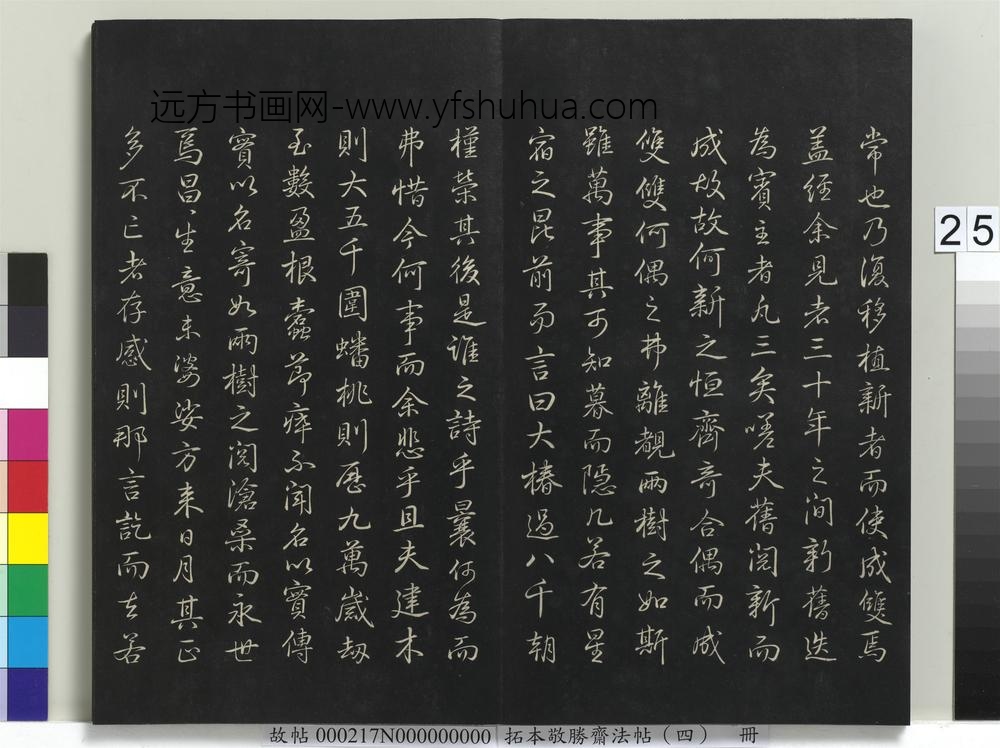 远方书画网-www.yfshuhua.com
常也乃復移植新者而使成雙焉
盖經余見者三十年之间新舊迭
為賓主者凡三矣嗟夫舊閱新而
成故故何新之恒齊奇合偶而成
雙雙何偶之弗離覩兩樹之如斯
雖萬事其可知暮而隐几若有星
宿之昆前而言曰大椿過八千朝
槿榮其後是誰之詩乎曩何為而
弗惜今何事而余悲乎且夫建木
則大五千圍蟠桃則歷九萬嵗劫
至數盈根蠹節瘁不聞名以實傳
實以名寄如兩樹之閱滄桑而永世
焉昌生意未婆娑方来日月其正
多不亡者存感則那言訖而去若
25
故帖 000217N000000000 拓本敬勝齋法帖（四） 冊